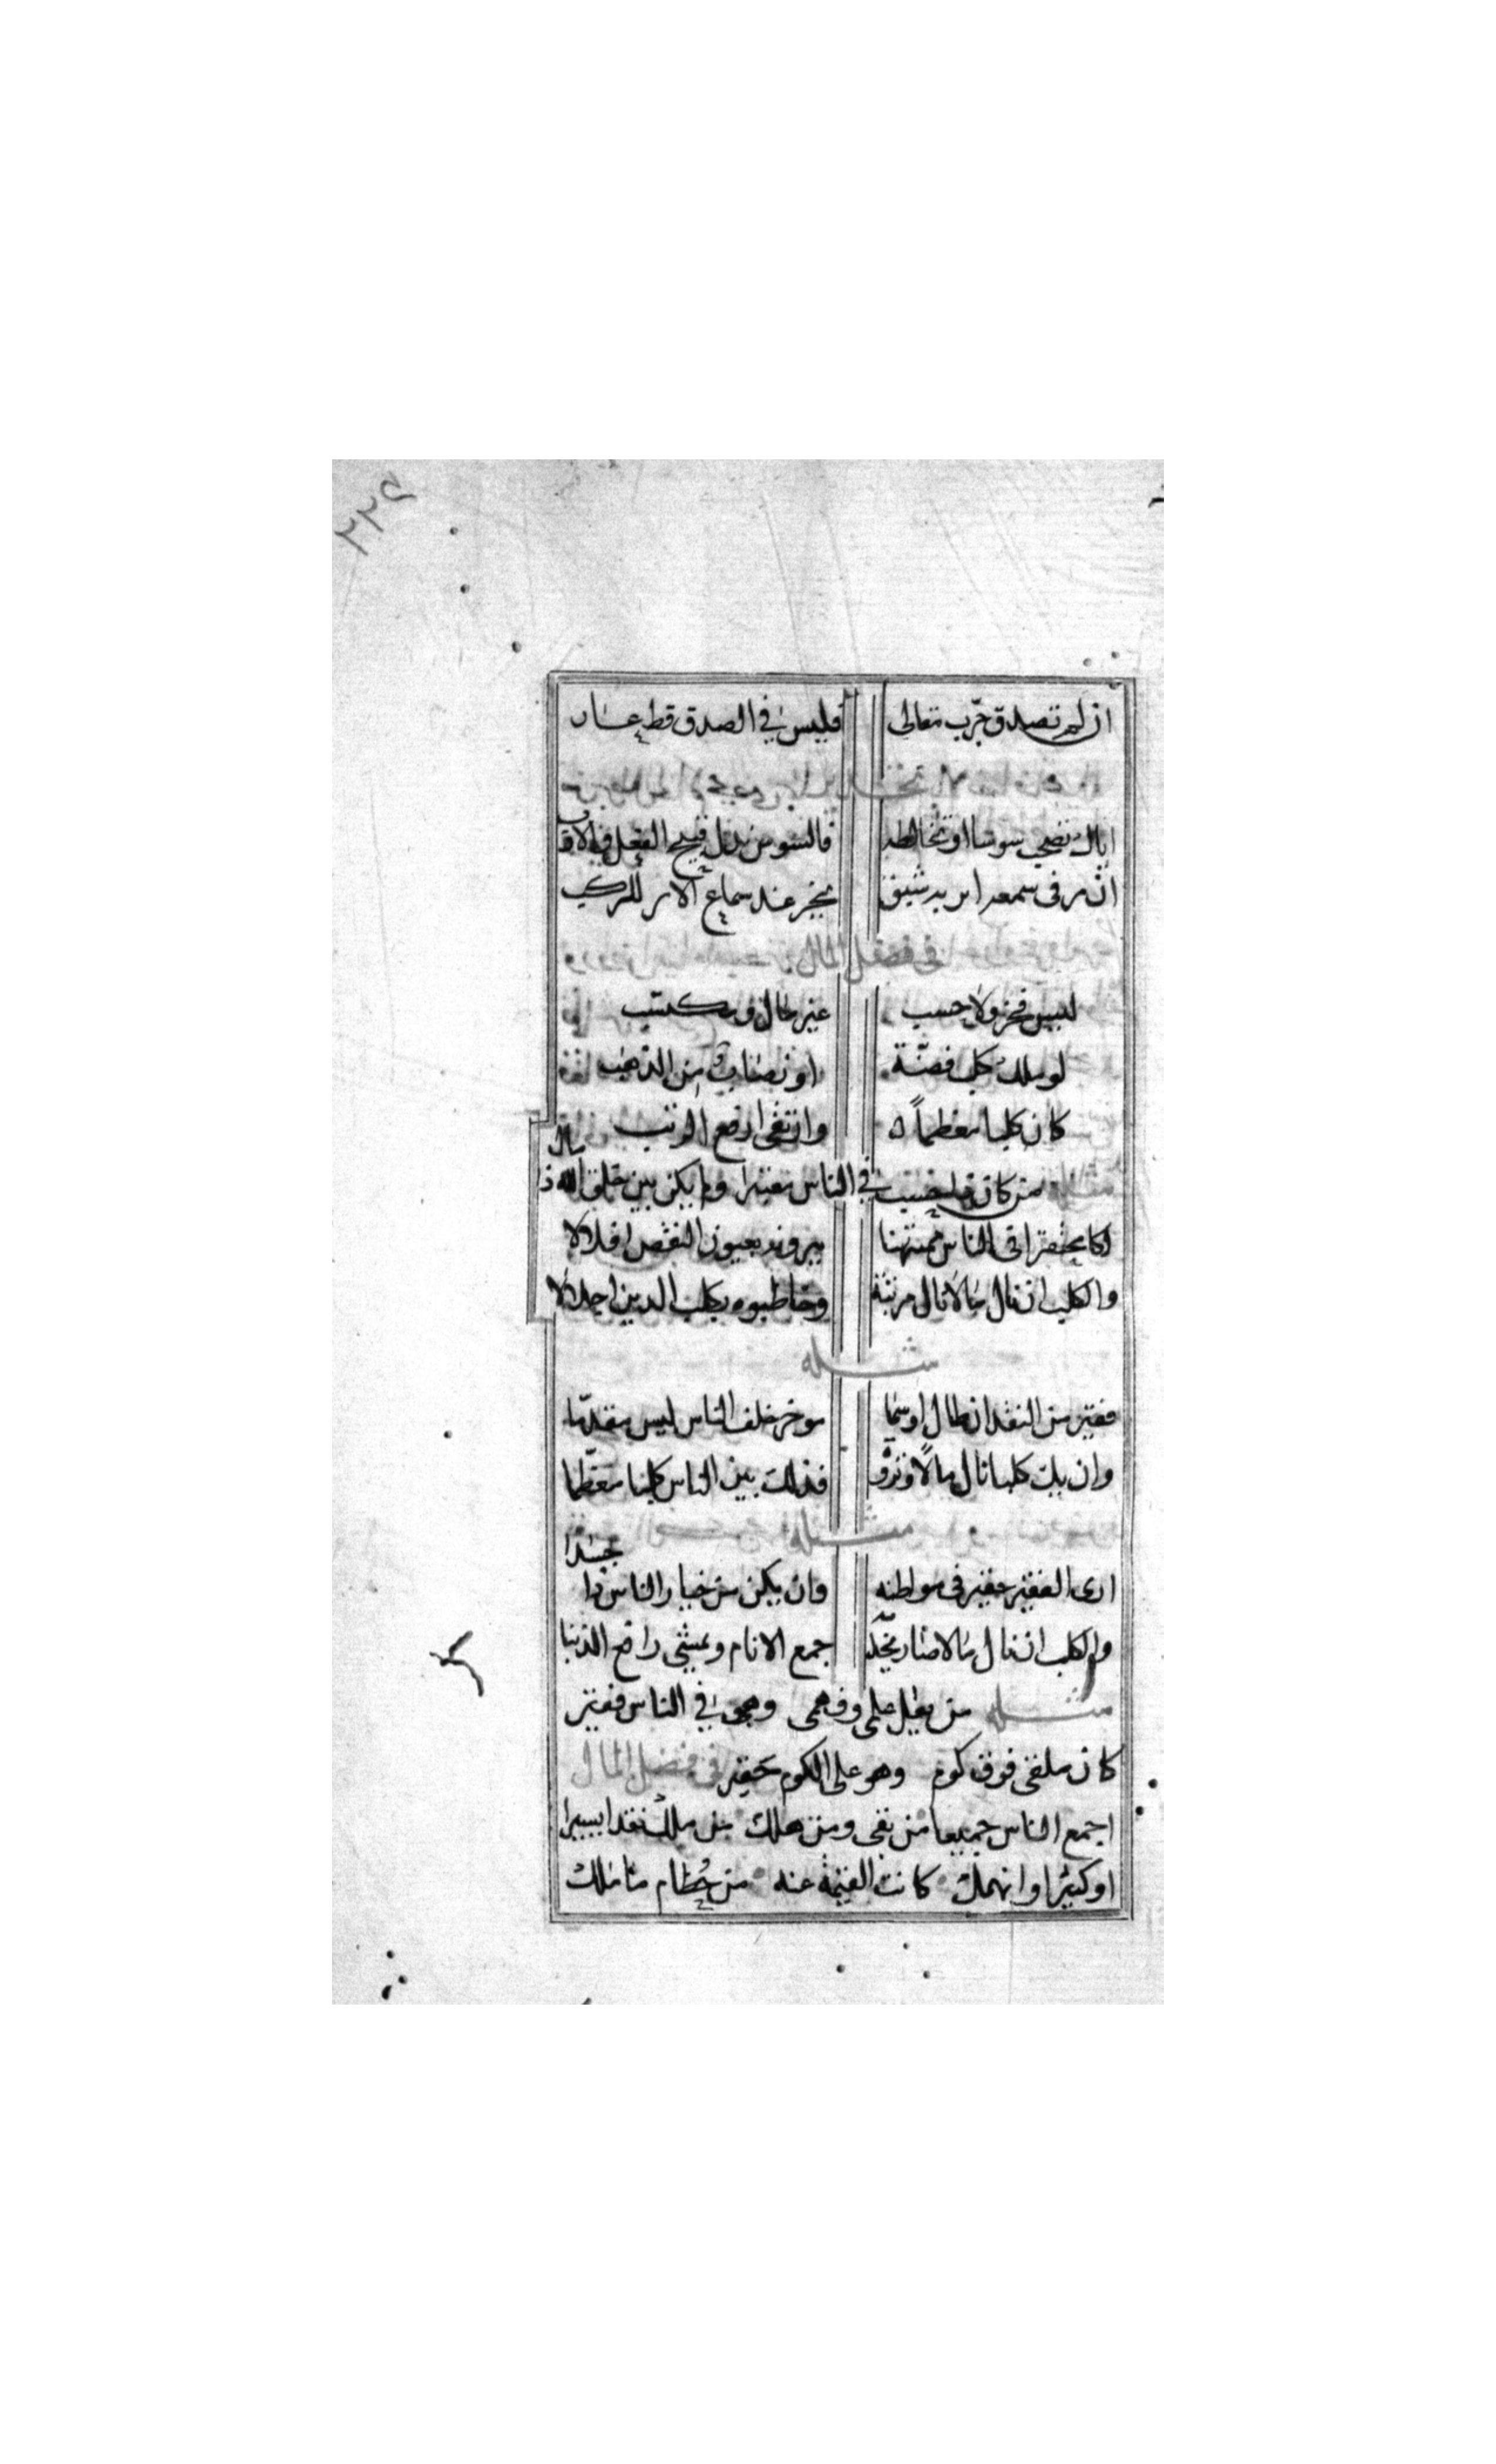 ٢٢٤
ان لم تصدق جرّب مقالى فليس في الصدق قط عار
اياك تضحى سوسا او تخالطه فالسوس نذل قبيح الفعل في الاف
ان مر فى سمعه اير يخر عند سماع الاير للركب
في فضل المال
ليس فخر ولا حسب غير مال ومكتسب
لو ملك كلب فضّة او نصابا من الذهب
كان كلبا معظماً وارتقى ارفع الرتب
مثله من كان في الناس فقيرا ولم يكن بين خلق الله ذا مال
يحتقر اتى الناس ممتهنا يرونه بعيون النقص اقلالا
والكلب ان نال مالا نال مرتبة وخاطبوه بكلب الدين اجلالا
مثله
فقير من النقد ان طال او سما موخر خلف الناس ليس مقدّما
وان يك كلبا نال مالًا وثروة فذلك بين الناس كلبا معظّما
مثله
ارى الفقير حقير فى مواطنه وان يكن من خيار الناس ذا
والكلب ان نال مالا صار جمع الانام ويمشى رافع الذنبا
مثله من يطل علمى وفهمى وهو في الناس فقير
كان ملقى فوق كوم وهو على الكوم حقير فى فضل المال
اجمع الناس جميعا من بقى ومن هلك من ملك نقدا يسيرا
او كثيرا وانهمك كانت القيمة عنه من حطام ما ملك